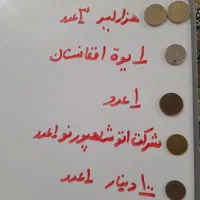 هزار لیر ۳ عدد
۱ ایوة افغانستان
۱ عدد
شرکت انوشاهپور نو ۱ عدد
۱۰۰ دینار ۱ عدد